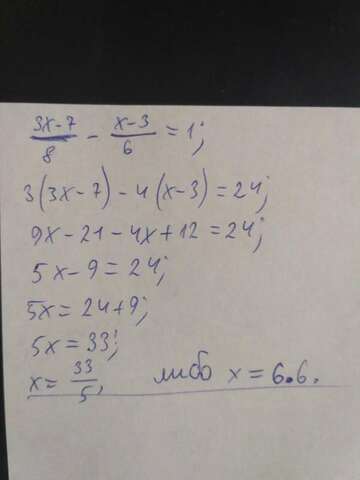 (3x-7)/8 - (x-3)/6 = 1;
3(3x-7) - 4(x-3) = 24;
9x - 21 - 4x + 12 = 24;
5x - 9 = 24;
5x = 24+9;
5x = 33;
x = 33/5, либо x = 6.6.